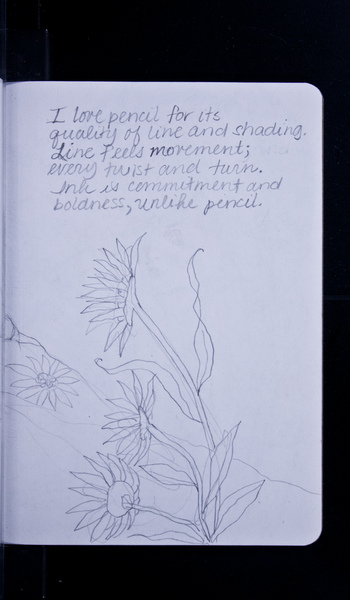 I love pencil for its
quality of line and shading.
Line feels movement;
every twist and turn.
Ink is commitment and
boldness, unlike pencil.